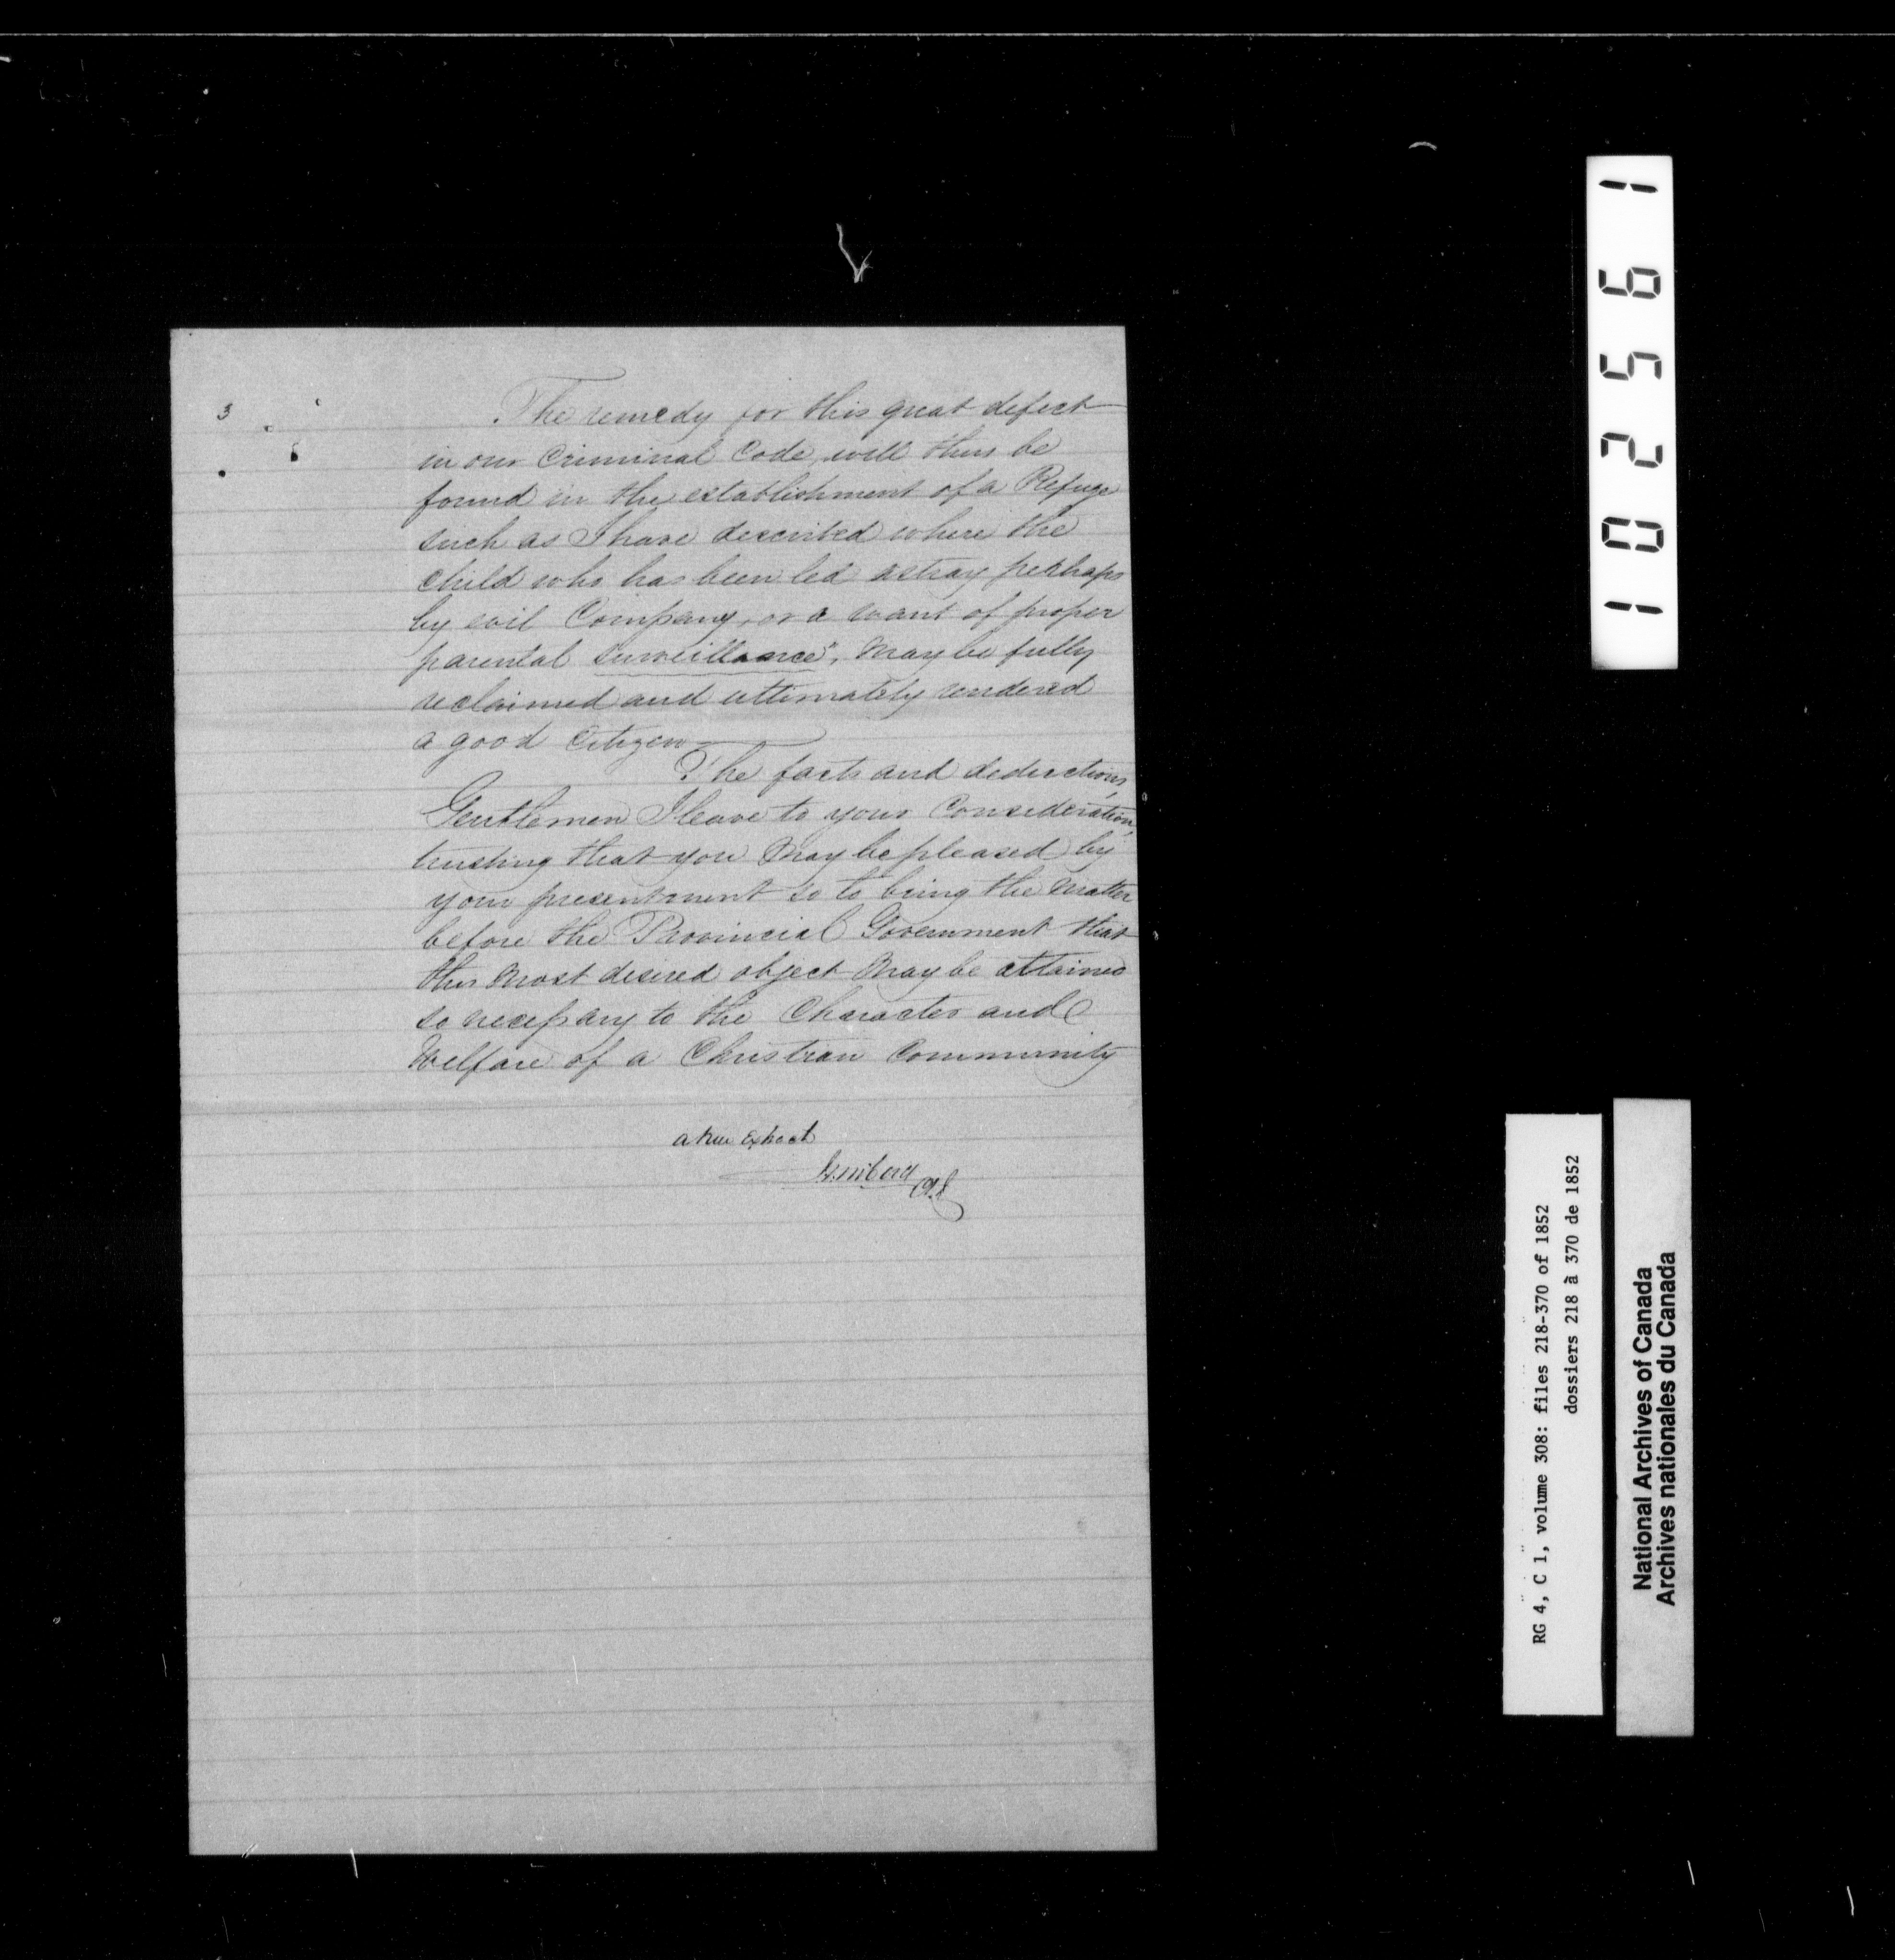 3
The remedy for this great defect
in our Criminal Code, will thus be
found in the establishment of a Refuge
such as I have described where the
Child who has been led astray perhaps
by evil Company, or a want of proper
parental surveillance, may be fully
reclaimed and ultimately rendered
a good Citizen
The facts and deductions,
Gentlemen I leave to your Consideration,
trusting that you may be pleased by
your presentment so to bring the matter
before the Provincial Government that
this most desired object may be attained
so necessary to the Character and
Welfare of a Christian Community
a true Extract
102561
RG 4, C 1, volume 308: files 218-370 of 1852
dossiers 218 à 370 de 1852
National Archives of Canada
Archives nationales du Canada